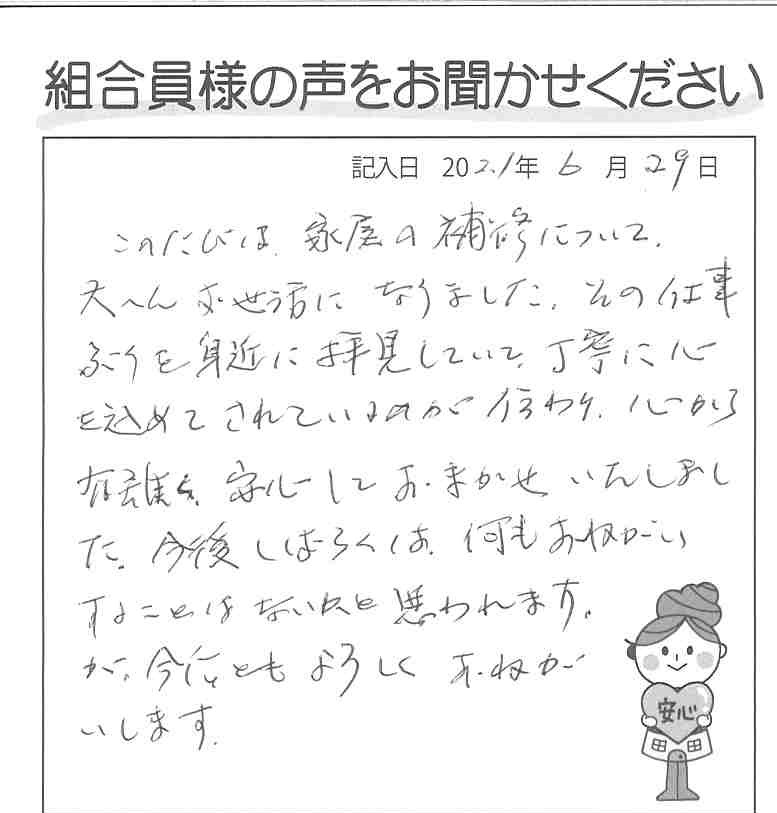 組合員様の声をお聞かせください
記入日 2021年 6月 29日
このたびは、家屋の補修について、
大へんお世話になりました。その仕事
ぶりを身近に拝見していて、丁寧に心
を込めてされているのが伝わり、心から
有難く、安心しておまかせいたしまし
た。今後しばらくは、何もおねがい
することはないと思われます。
が、今后ともよろしくおねが
いします。
安心